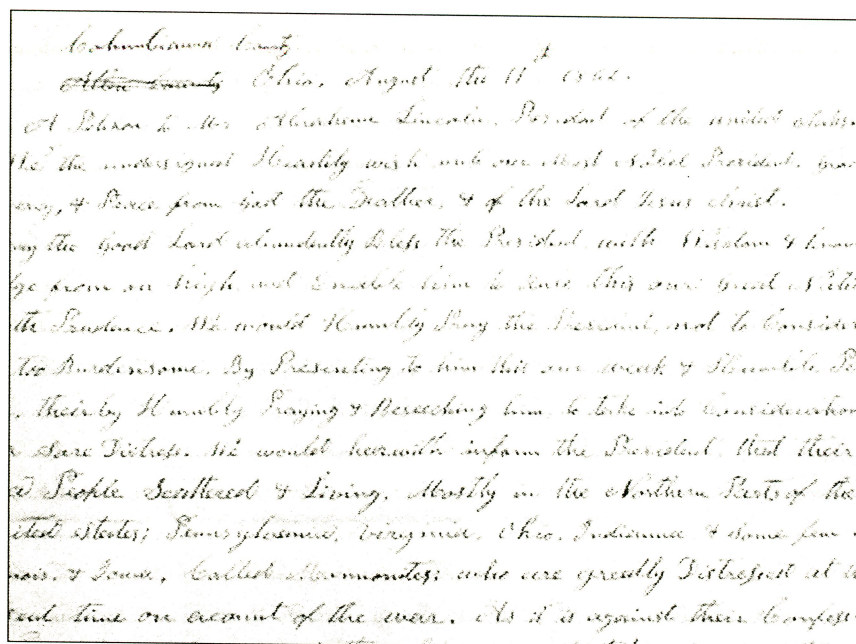 Columbiana County
Allen County Ohio, August the 11th 1862.
A Petition to Mr Abraham Lincoln, President of the united states
We the undersigned Heartily wish unto our Most Nobel President, Gra
ercy, & Peace from God the Father, & of the Lord Jesus christ.
ay the Good Lord abundently Bless the President, with Wisdom & know
ge from on high, and Enable him to
this our great Nati
th Prudence. We would Humbly Pray the President, not to Consider
too Burdensome, By Presenting to him this our weak & Humble Pe
, their by Humbly Praying & Beseeching him, to take into Consideration
Sore Distress. We would herwith inform the President, that their
a People Scattered & Living, Mostly in the Northern Parts of the
ited states; Pennsylvania, Virginia, Ohio, Indianna & some few
inois, & Iowa, Called Mennonites; who are greatly Distressed at
sent time on account of the war. As it is against their Confess